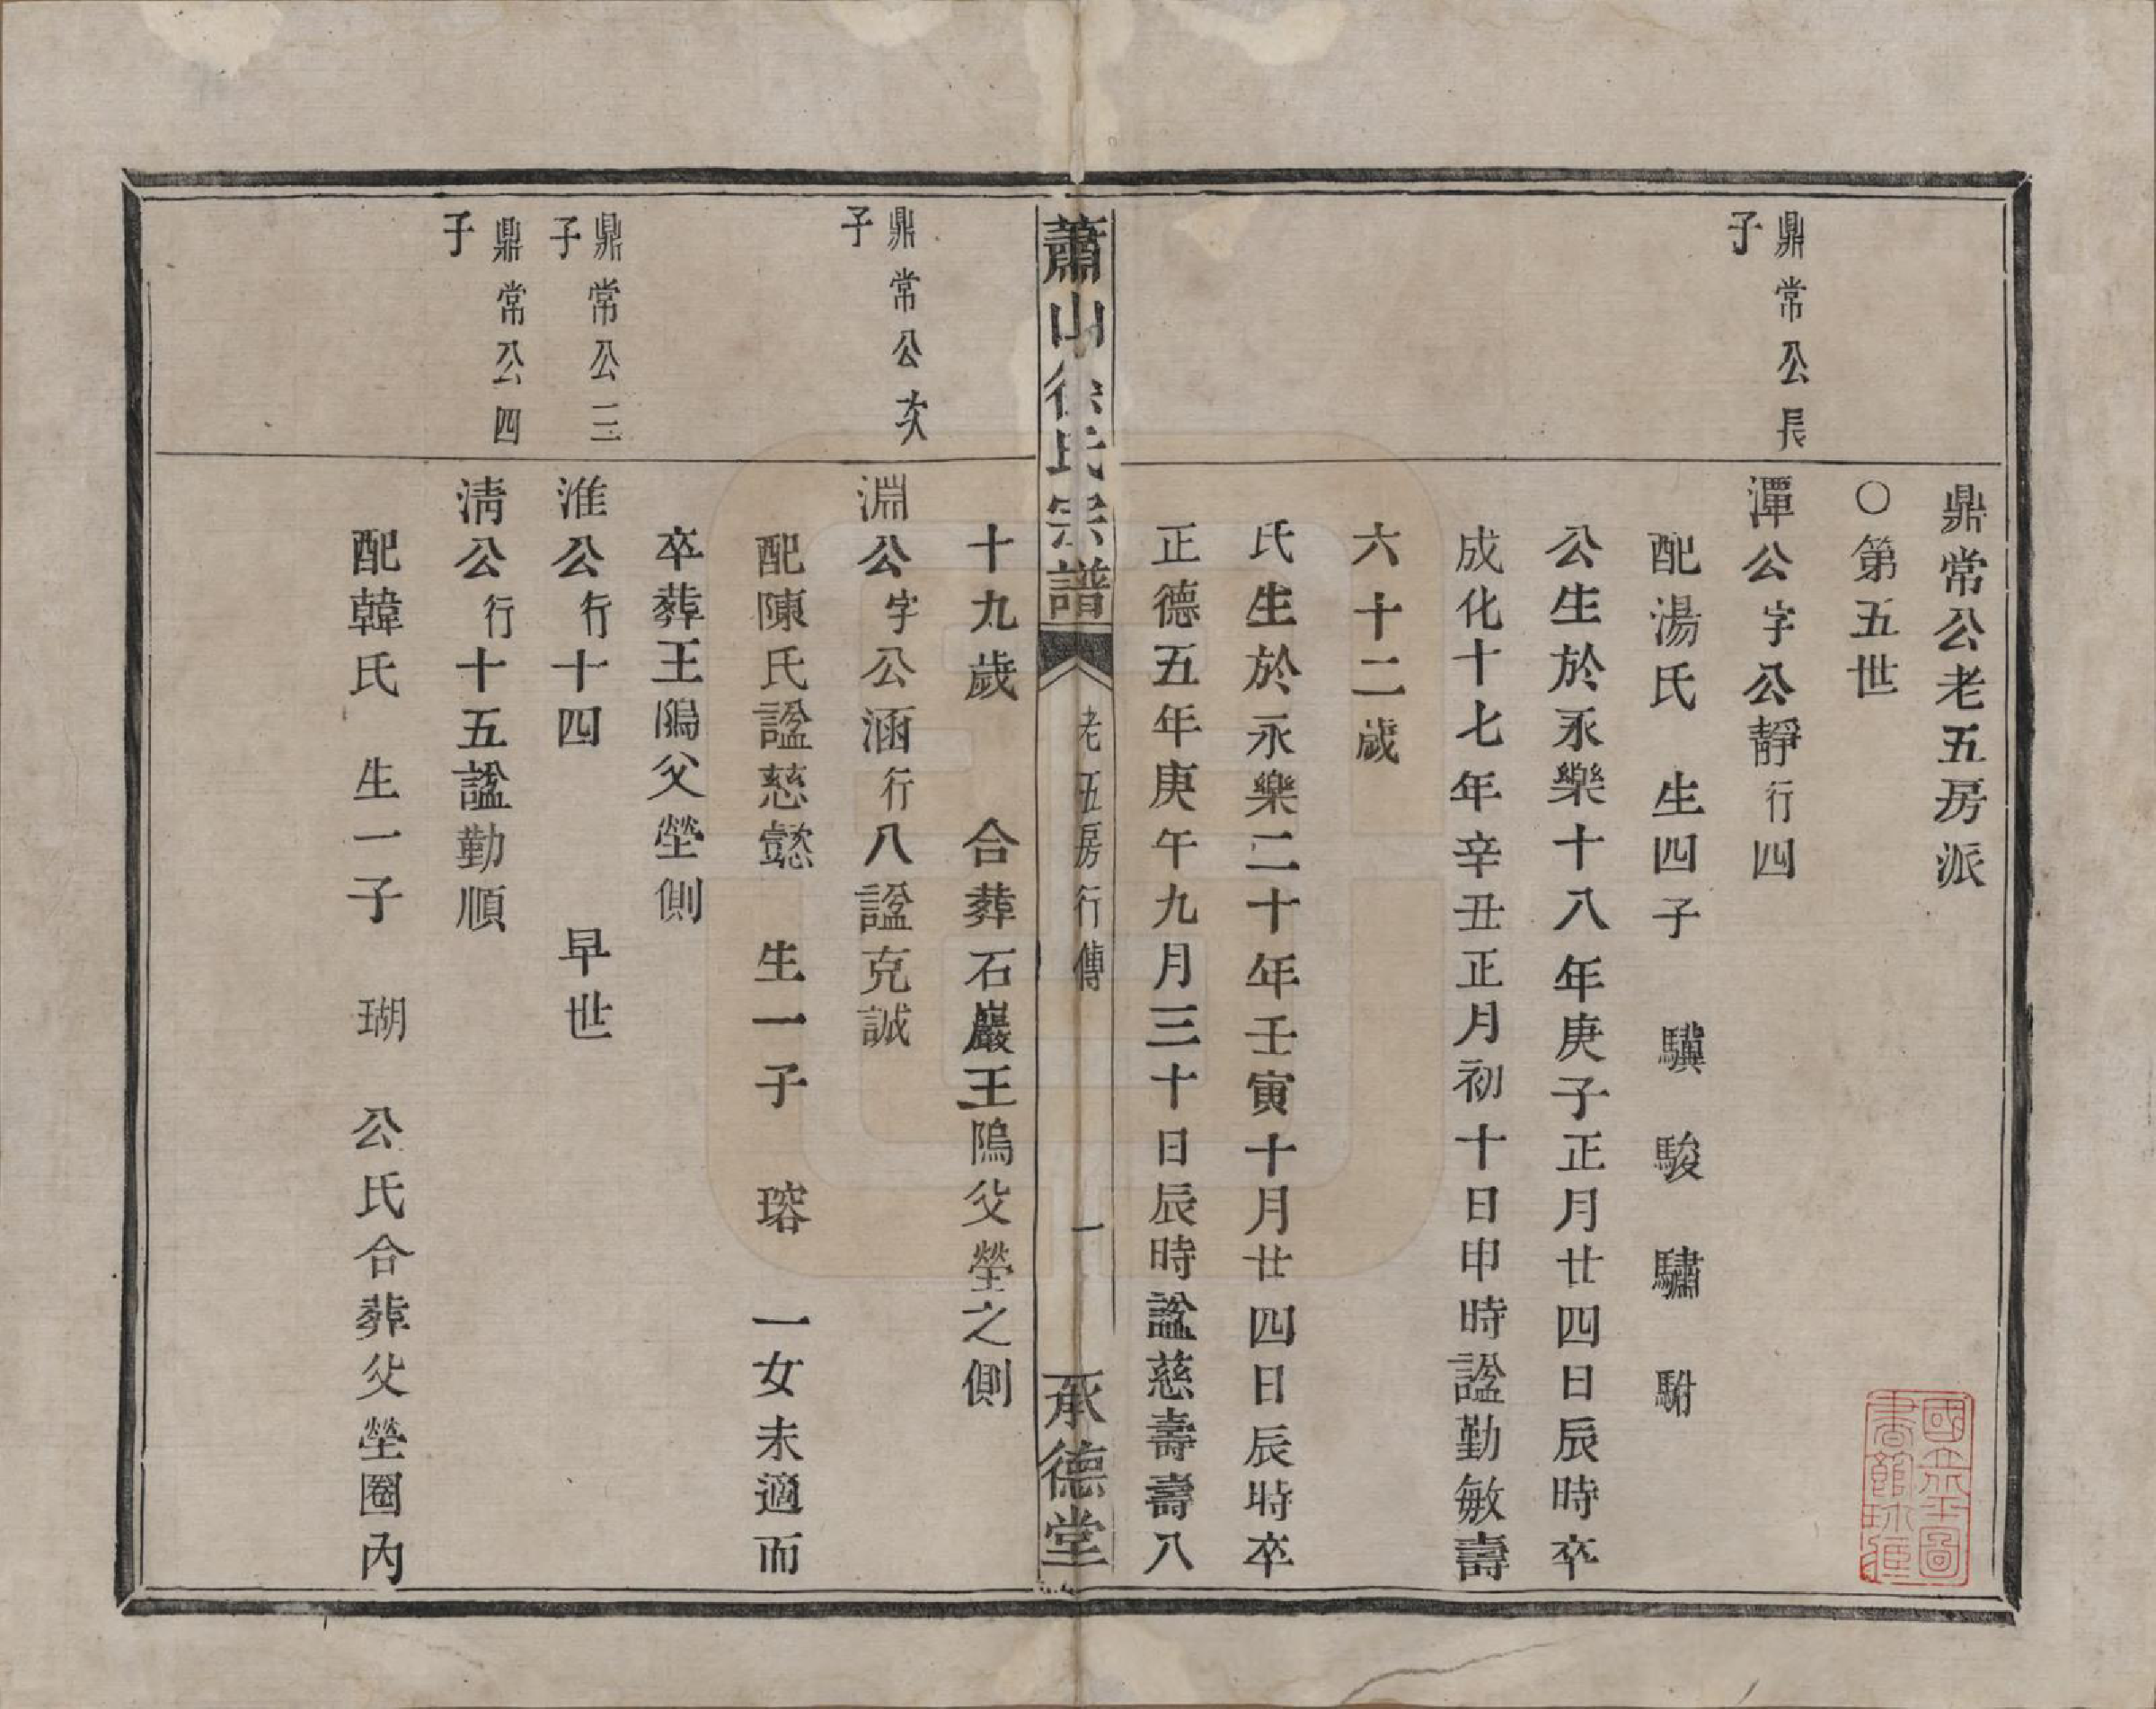 鼎常公老五房派
○第五世
鼎常公長子
潭公字公靜行四
配湯氏 生四子 驥 駿 驌 駙
公生於永樂十八年庚子正月廿四日辰時卒
成化十七年辛丑正月初十日申時諡勤敏壽
六十二歲
氏生於永樂二十年壬寅十月廿四日辰時卒
正德五年庚午九月三十日辰時諡慈壽壽八
蕭山徐氏宗譜
老五房行傳
一
承德堂
十九歲 合葬石巖王隖父塋之側
鼎常公次子
淵公字公涵行八諡克誠
配陳氏諡慈懿 生一子 瑢 一女未適而
卒葬王隖父塋側
鼎常公三子
淮公行十四 早世
鼎常公四子
淸公行十五諡勤順
配韓氏 生一子 瑚 公氏合葬父塋圈內
國立北平圖書館珍藏